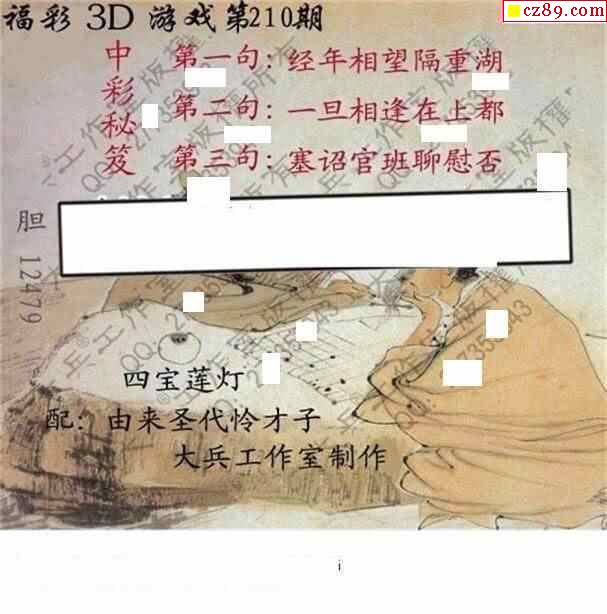 福彩 3D 游戏第210期
cz89.com
中彩秘笈
第一句：经年相望隔重湖
第二句：一旦相逢在上都
第三句：塞诏官班聊慰否
胆 12479
四宝莲灯
配：由来圣代怜才子
大兵工作室制作
i